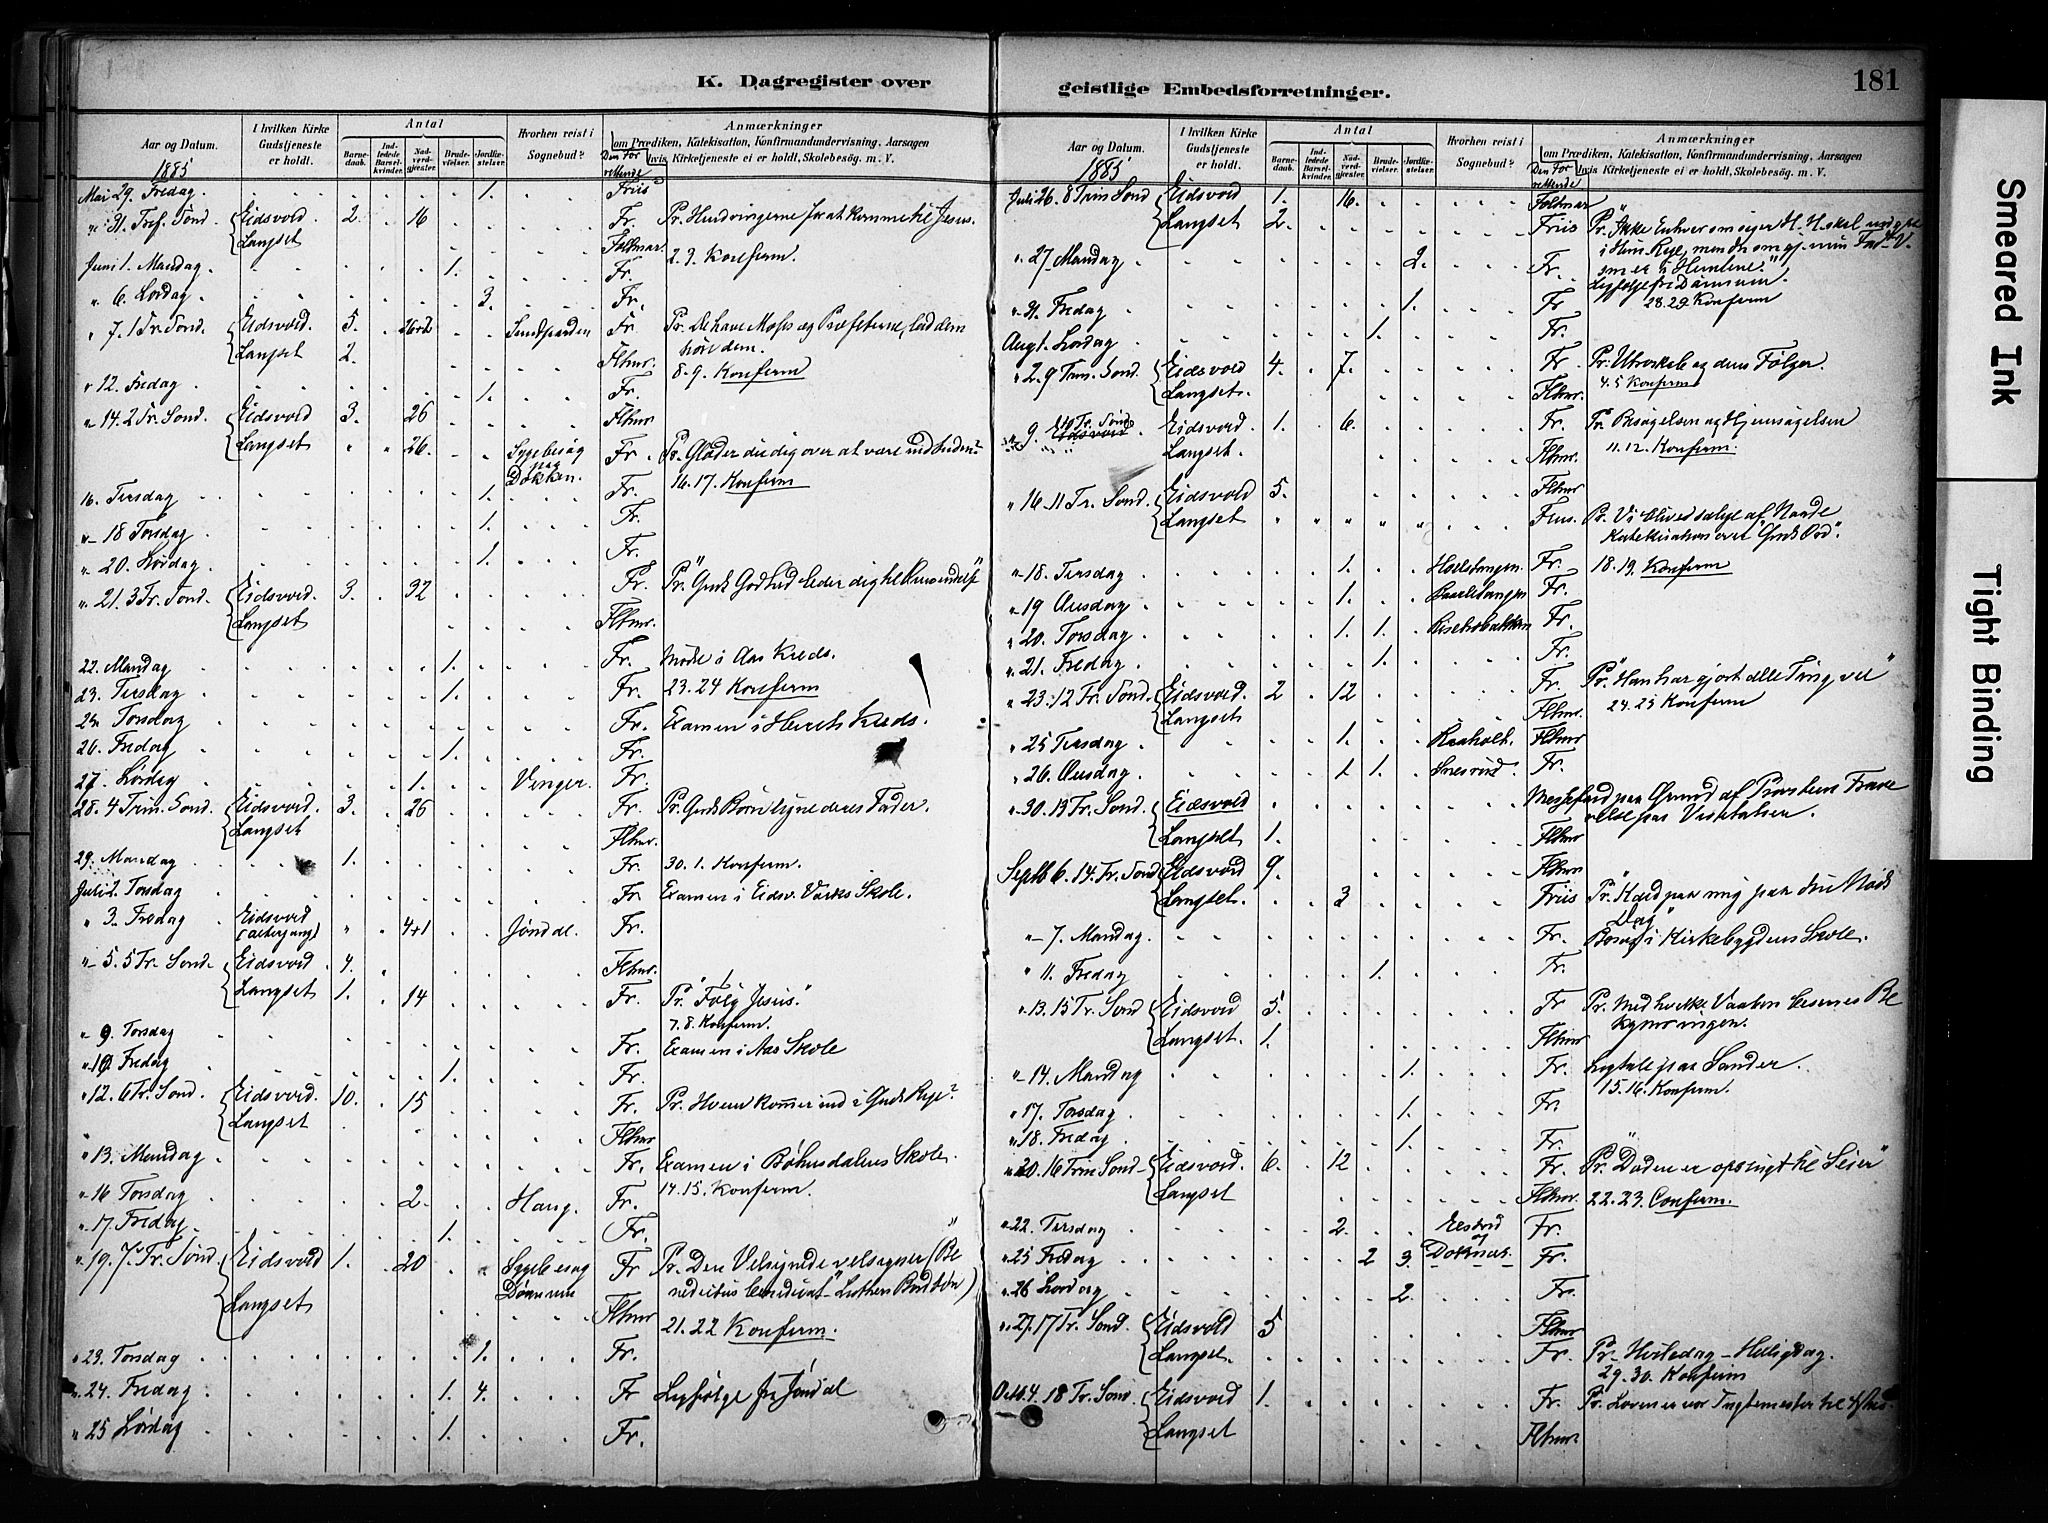 K. Dagregister over
Aar og Datum.
I hvilken Kirke Gudstjeneste er holdt.
Antal
Barnedaab.
Indledede Barselkvinder.
Nadverdgjester.
Brudevielser.
Jordfæstelser.
Hvorhen reist i Sognebud?
Anmærkninger
om Prædiken, Katekisation, Konfirmandundervisning, Aarsagen
hvis Kirketjeneste ei er holdt, Skolebesøg. m. V.
Den Forrettende
1885
Mai 29. Fredag . . . . . 1. . Friis
31. Tref. Sønd {Eidsvold . 2. . 16 . . . Fr. Pr. Hindringerne for at komme til Jesus.
{Langset . . . . Foltmar. 2.3. Konferm.
Juni 1. Mandag . . . . 1. . . Fr.
" 6. Lørdag . . . . . 3. . Fr.
" 7. 1 Tr. Sønd. {Eidsvold. 5. . 26+2 . . Fr. Pr. De have Moses og Profeterne, lad dem
{Langset 2. . . . Flhmr. høre dem.
8.9. Konferm
" 12. Fredag . . . . . 1. . Fr.
" 14. 2 Tr. Sønd. {Eidsvold 3. . 26 . . . Flhmr
{Langset " " 26. . . Sygebesøg paa Dokken. Fr. Pr. Glæder du dig over at være
16. 17. Konferm
16. Tirsdag . . . . . 1. . Fr.
" 18 Torsdag . . . . . 1. . Fr.
" 20. Lørdag . . . . . 1. . Fr.
" 21. 3 Tr. Sønd. {Eidsvold. 3. . 32 . . . Fr. Pr. "Guds Godhed leder dig til Omvendelse"
{Langset . . . . Flhmr.
22. Mandag . . . . 1. . . Fr. Møde i Aas Kreds.
23. Tirsdag . . . . 1. . . Fr. 23.24 Konferm
Torsdag . . . . . . Fr. Examen i Kreds.
26. Fredag . . . . 1. . . Fr.
27. Lørdag . . . 1. . . Venger. Fr.
28. 4 Trin. Sønd. {Eidsvold. 3. . 26 . . . Fr. Pr. Guds Børn ligne deres Fader.
{Langset . . . . Flhmr.
29. Mandag . 1. . . . . Fr. 30.1. Konferm.
Juli 2. Torsdag . . . . . . Fr. Examen i Eidsv. Værks Skole.
" 3. Fredag Eidsvold (altergang) " . 4+1 . . Jønd al. Fr.
" 5. 5 Tr. Sønd. {Eidsvold . 4. . . . Flhmr.
{Langset 1. . 14 . . . Fr. Pr. "Følg Jesus."
7.8. Konferm.
" 9. Torsdag . . . . . . Fr. Examen i Aas Skole
" 10. Fredag . . . . 1. . . Fr.
" 12. 6 Tr. Sønd. {Eidsvold. 10. . 15 . . . Fr. Pr. Hvem kommer ind i Guds Rige?
{Langset . . . . Flhmr
" 13. Mandag . . . . . . Fr. Examen i Bøhnsdalens Skole.
" 16 Torsdag . . . 2. . . Haug. Fr. 14.15. Konferm.
" 17. Fredag . . . . 1. . . Fr.
" 19. 7. Tr. Sønd {Eidsvold 1. . 20 . . Sygebesøg Dønnum Fr Pr. Den Velsignede velsigner (Be
nedictus benedicat" Luthers Bordbøn)
{Langset . . . . Flhmr 21.22 Konferm.
" 23. Torsdag . . . . . 1. . Fr.
" 24. Fredag . . . . 1. 4. . Fr Ligfølge fra Jøndal
" 25 Lørdag . . . . 1. . . Fr.
geistlige Embedsforretninger.
181
Aar og Datum.
I hvilken Kirke Gudstjeneste er holdt.
Antal
Barnedaab.
Indledede Barselkvinder.
Nadverdgjester.
Brudevielser.
Jordfæstelser.
Hvorhen reist i Sognebud?
Anmærkninger
om Prædiken, Katekisation, Konfirmandundervisning, Aarsagen
hvis Kirketjeneste ei er holdt, Skolebesøg. m. V.
Den Forrettende
1885
Juli 26. 8 Trin Sønd {Eidsvold 1. . 16. . . . Foltmar
{Langset 2. . . . Friis Pr. "Ikke Enhver som siger H. H. skal indgaa
i Him. Rige, men den som gj. min Fad. V.
som er i Himlene."
" 27. Mandag . . . . . 2. . Fr. Ligfølge fra Dønnum.
28.29. Konferm
" 31. Fredag . . . . . 1. . Fr
Aug 1. Lørdag . . . . 1. . . Fr.
" 2. 9 Trin. Sønd. {Eidsvold 4. . 7. . . . Fr. Pr. Utroskab og dens Følger.
{Langset. . . . . Flhmr. 4.5 Konferm
" 9. 10 Tr. Sønd {Eidsvold 1. . 6. . . . Fr. Pr. Besøgelsen og Hjemsøgelsen
{Langset. . . . . Flhmr. 11.12. Konferm.
" 16. 11 Tr. Sønd. {Eidsvold 5. . . . Flhmr
{Langset " " " " " . Friis. Pr. Vi blive salige af Naade
Katekisation over "Guds Ord".
" 18. Tirsdag . . . 1. . . Fr. 18.19. Konferm
" 19 Onsdag . . . 1. . . Fr.
" 20. Torsdag . . . 1. 1. . Fr.
" 21. Fredag . . . . 1. . . Fr.
" 23. 12 Tr. Sønd. {Eidsvold. 2 . 12 . . . Fr. Pr. "Han har gjort alle Ting vel"
{Langset. . . . . Flhmr. 24.25 Konferm
" 25 Tirsdag . . . 1. . . Raaholt. Flhmr
" 26. Onsdag . . . 1 1. . Fr.
" 30. 13 Tr. Sønd. {Eidsvold . . . . Messefald paa Grund af Provstens Fravæ
relse paa Visitatsen.
{Langset 1. . . . Flhmr
Septb 6. 14. Tr. Sønd {Eidsvold 9. . . . Flhmr
{Langset. . . 3 . . . Friis Pr. "Kald paa mig paa din Nøds
Dag"
" 7. Mandag . . . . . . Fr. Besøg i Kirkebygdens Skole.
" 11. Fredag . . . . 1. . . Fr.
" 13. 15 Tr. Sønd {Eidsvold 5. . . . Fr Pr. Med hvilke Vaaben Be
kymringen.
{Langset. 1. . . . Flhmr
" 14. Mandag . . . . . 1. . Fr. Ligtale paa Sander.
15.16. Konferm.
" 17. Torsdag . . . . . 1. . Fr.
" 18. Fredag . . . . . 1. . Fr.
" 20. 16 Trin Sønd {Eidsvold. 6. . 12 . . . Fr. Pr. "Døden er opslugt til Seier"
{Langset . . . . Flhmr. 22.23. Conferm.
" 22. Tirsdag . . . 2. . . og Fr.
" 25 Fredag . . . . 2 3. Fr.
" 26 Lørdag . . . . . 2. . Fr.
" 27. 17 Tr. Sønd. {Eidsvold 5 . . . Flhmr
{Langset. . . . . Fr. Pr. Hviledag – Helligdag.
29.30. Konferm
Octb. 4. 18 Tr. Sønd. {Eidsvold 1. . . . Fr. Pr. Loven er vor Tugtemester til Chris.
{Langset . . . . Flhmr.
Smeared Ink
Tight Binding